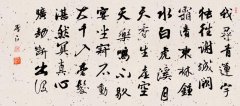 我尋青蓮宇
獨往謝城闕
霜清東林鐘
水白虎溪月
天香生虛空
天樂鳴不歇
大千入毫髮
湛然冥真心
曠劫斷出沒